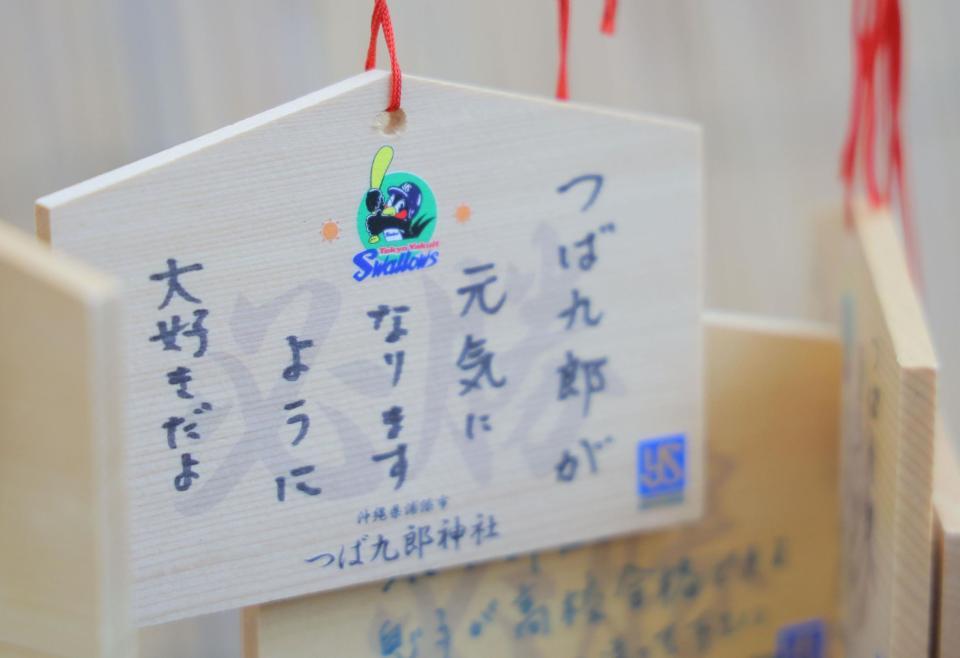 つば九郎が
元気に
なります
ように
大好きだよ
必勝
Tokyo Yakult
Swallows
YS
沖縄県浦添市
つば九郎神社
高校合格